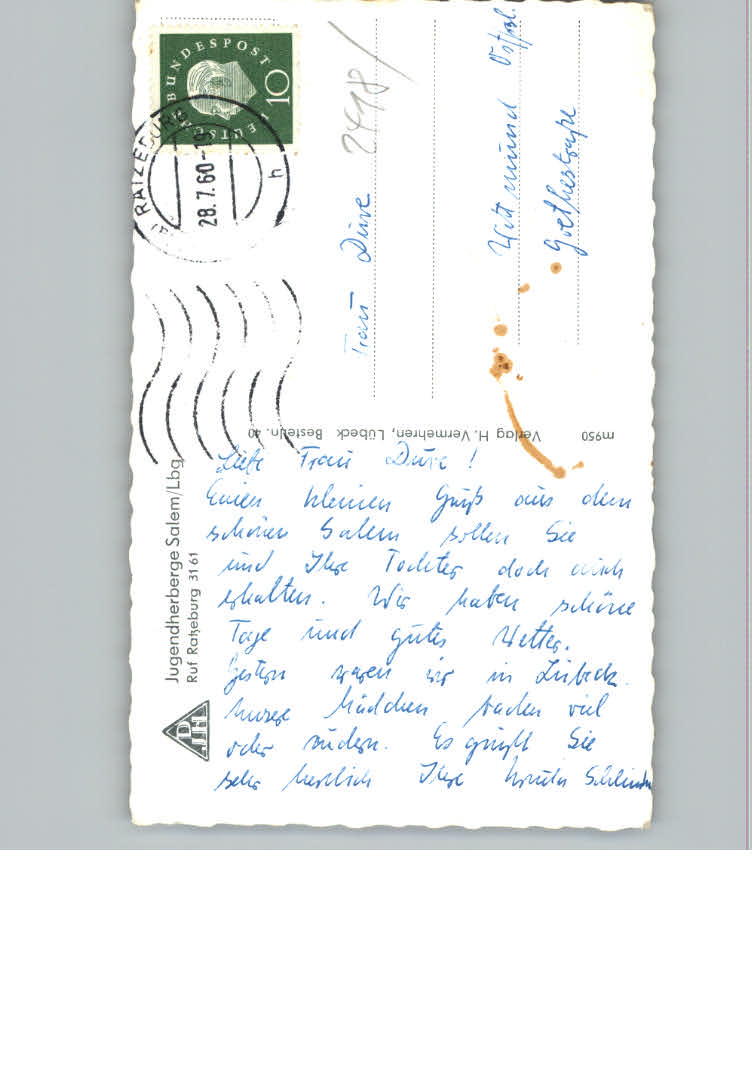 DEUTSCHE BUNDESPOST
10
RATZEBURG
28.7.60-19
h
2418/
Frau Düre
Wittmund Ostfrsl.
Goethestraße
m950 Verlag H. Vermehren, Lübeck Bestelln. 40
Jugendherberge Salem/Lbg
Ruf Ratzeburg 3161
DJH
Liebe Frau Düre!
Einen kleinen Gruß aus dem
schönen Salem sollen Sie
und Ihre Tochter doch auch
erhalten. Wir haben schöne
Tage und gutes Wetter.
Gestern waren wir in Lübeck.
Unsere Mädchen baden viel
oder rudern. Es grüßt Sie
sehr herzlich Ihre